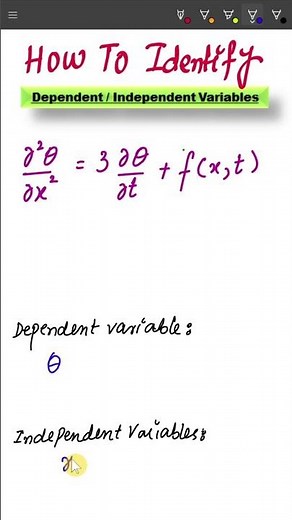 How To Identify
Dependent / Independent Variables
∂²θ/∂x² = 3 ∂θ/∂t + f(x,t)
Dependent variable:
θ
Independent Variables:
x